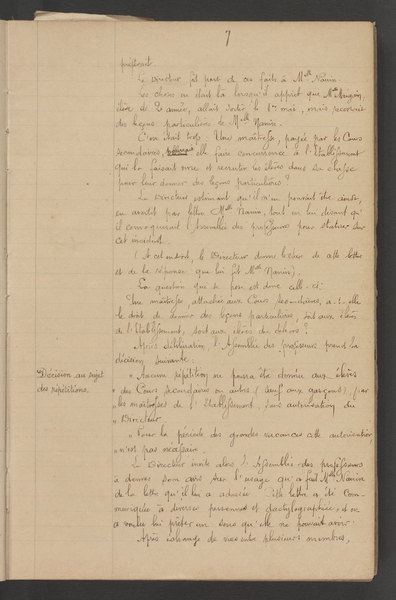 7
préférait.
Le Directeur fit part de ces faits à Melle Nanin.
Les choses en étaient là lorsqu'il apprit que Melle
élève de 2e année, allait sortir le 1er mai, mais recevrait
des leçons particulières de Melle Nanin.
C'en était trop. Une maîtresse, payée par les Cours
secondaires, elle faire concurrence à l'Etablissement
qui la faisait vivre et recruter les élèves dans sa classe
pour leur donner des leçons particulières ?
Le Directeur estimant qu'il n'en pouvait être ainsi,
en avertit par lettre Melle Nanin, tout en lui disant qu'il
convoquerait l'Assemblée des professeurs pour statuer sur
cet incident.
(A cet endroit, le Directeur donne lecture de cette lettre
et de la réponse que lui fit Melle Nanin).
La question qui se pose est donc celle-ci :
Une maîtresse, attachée aux Cours secondaires, a-t-elle
le droit de donner des leçons particulières, soit aux élèves
de l'Etablissement, soit aux élèves du dehors ?
Après délibération, l'Assemblée des professeurs prend la
décision suivante :
Décision au sujet
des répétitions.
" Aucune répétition ne pourra être donnée aux élèves
" des Cours secondaires ou autres (sauf aux garçons) par
" les maîtresses de l'Etablissement, sans autorisation du
" Directeur.
" Pour la période des grandes vacances cette autorisation
" n'est pas nécessaire.
Le Directeur invite alors l'Assemblée des professeurs
à donner son avis sur l'usage qu'a fait Melle Nanin
de la lettre qu'il lui a adressée. Cette lettre a été com-
muniquée à diverses personnes et dactylographiée, et on
a voulu lui prêter un sens qu'elle ne pouvait avoir.
Après échange de vues entre plusieurs membres,